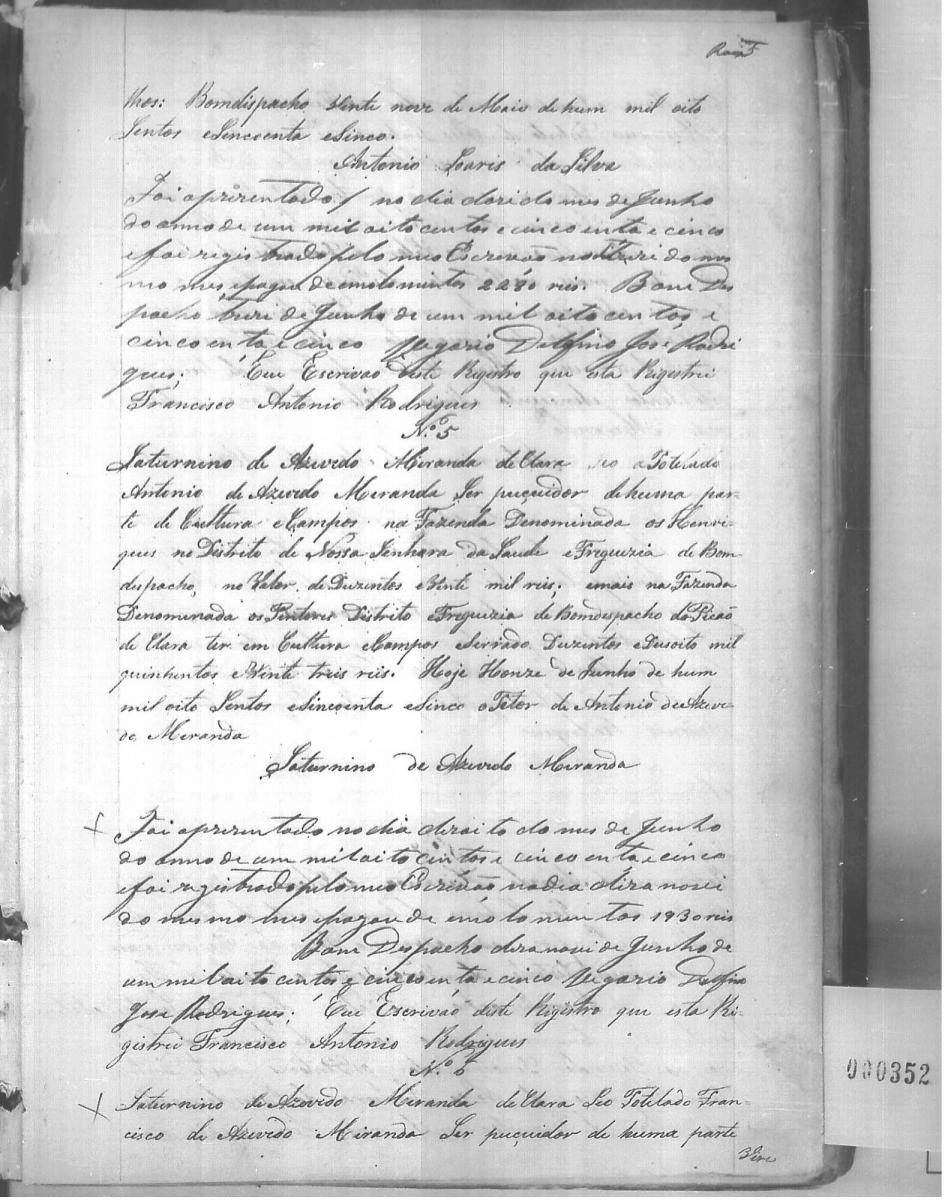 lhos: Bomdispacho Vinte nove de Maio de hum mil oito
Sentos eSincoenta eSinco.
Antonio Soaris da Silva
Foi aprizentado no dia dozi do mes de Junho
do anno de um mil oito centos e cinco enta e cinco
e foi registrado pelo meo Escrivão no dia trezi do mes
mo mes, e pagou de emolomintos 2280 reis. Bom Des
pacho trezi de Junho de um mil oito centos e
cinco enta e cinco Vigario Delfino José Rodri
gues; Eue Escrivão diste Rigistro que esta Rigistrei
Francisco Antonio Rodrigues
N.º 5
Saturnino de Azevedo Miranda deClara seo oTotelado
Antonio de Azevedo Meranda Ser puçuidor dehuma par-
te de Cultura eCampos na Fazenda Denominada os Henri-
ques no Distrito de Nossa Senhara da Saude eFreguizia de Bom-
despacho, no Valor de Duzentos eVinte mil reis; emais na Fazenda
Denominada os Distrito eFreguizia de Bomdespacho do Picaõ
de Clara ter em Cultura eCampos eSerrado Duzentos eDusoito mil
quinhentos eVinte treis reis. Hoje Honze de Junho de hum
mil oito Sentos eSincoenta eSinco oTotor de Antonio de Azeve-
do Meranda
Saturnino de Azevedo Meranda
Foi aprizentado no dia dizoito do mes de Junho
do anno de um mil oito centos e cinco enta e cinco
e foi registrado pelo meo Escrivão no dia dizanovi
do mesmo mes e pagou de emolomentos 1930 reis
Bom Despacho dizanovi de Junho de
um mil oito centos e cinco enta e cinco Vigario Delfino
José Rodrigues; Eue Escrivão diste Rigistro que esta Ri-
gistrei Francisco Antonio Rodrigues
N.º 6
Saturnino de Azevedo Meranda deClara Seo Totelado Fran-
cisco de Azevedo Miranda Ser puçuidor de huma parte
000352